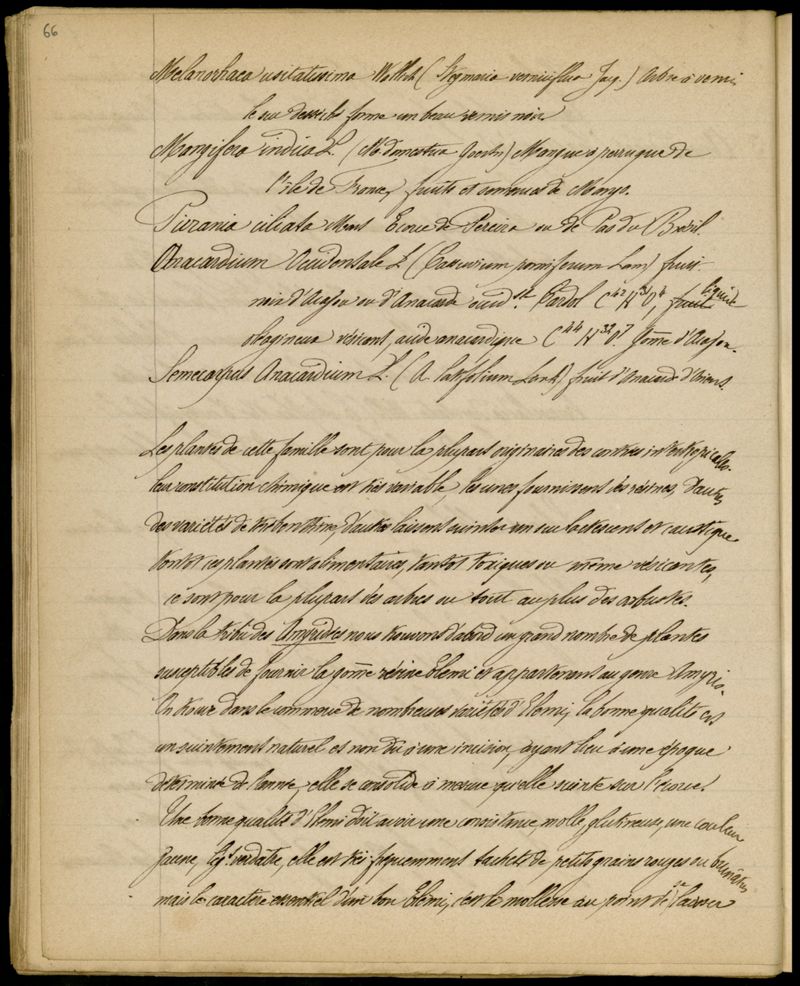 66
Melanorhaea usitatissima Wallich ( Stagmaria verniciflua Jacq. ) Arbre à vernis
le suc desséché forme un beau vernis noir
Mangifera indica L. ( M. domestica Goertn) Mangue à perruque de
l'isle de France, fruits et semences de Mango.
Picrania ciliata Mart Ecorce de Pereira ou de Pao do Brésil
Anacardium Occidentale L ( Cassuvium pomiferum Lam) fruit
noix d'Acajou ou d'Anacarde Cardol C⁴² H³¹O⁴, fruit liquide
oléagineux vésicant, acide anacardique C⁴⁴ H³²O⁷ Gõme d'Acajou.
Semecarpus Anacardium L. ( A. latifolium Lam k) fruit d'Anacarde d'Orient.
Les plantes de cette famille sont pour la plupart originaires des contrées intertropicales
leur constitution chimique est très variable, les unes fournissent des résines, d'autres
des variétés de térébenthine, d'autres laissent suinter un suc lactescent et caustique
tantôt ces plantes sont alimentaires, tantôt toxiques ou même vésicantes,
ce sont pour la plupart des arbres ou tout au plus des arbustes.
Dans la tribu des Amyridées nous trouvons d'abord un grand nombre de plantes
susceptibles de fournir la gõme résine Elemi et appartenant au genre Amyris.
On trouve dans le commerce de nombreuses variétés d'Elemi, la bonne qualité est
un suintement naturel et non dû à une incision, ayant lieu à une époque
déterminée de l'année, elle se consolide à mesure qu'elle suinte sur l'écorce.
Une bonne qualité d'Elemi doit avoir une consistance molle, glutineuse, une couleur
jaune, verdâtre, elle est très fréquemment tachetée de petits grains rouges ou brunâtres
mais le caractère essentiel d'un bon Elemi, c'est la mollesse au point de se laisser